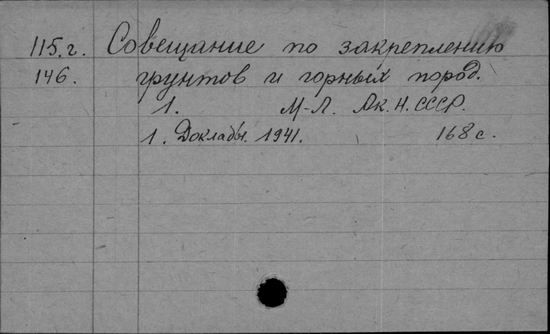 115.г. Совещание по закреплению
146. грунтов и горных пород.
1. М-Л. Ак.Н.СССР.
1. Доклады. 1941. 168 с.